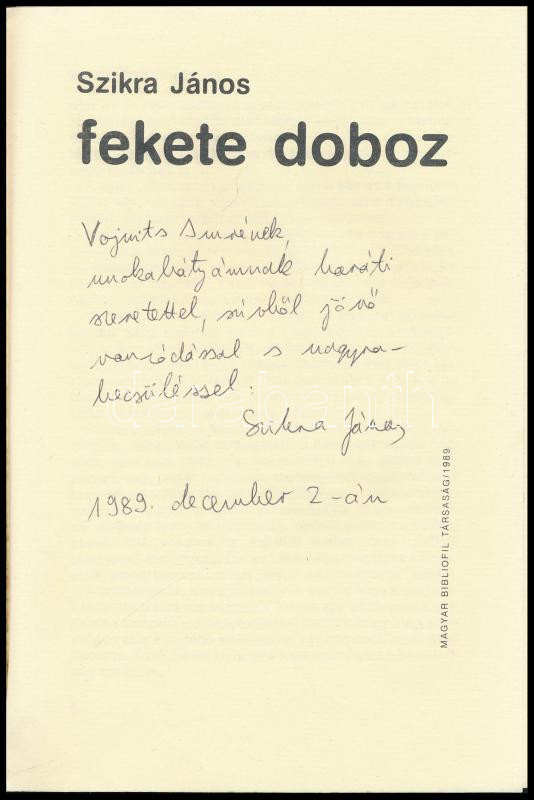 Szikra János
fekete doboz
Vojnits Imrének,
unokabátyámnak baráti
szeretettel, szívből jövő
vonzódással s nagyra-
becsüléssel:
Szikra János
1989. december 2-án
MAGYAR BIBLIOFIL TÁRSASÁG/1989
darabanth